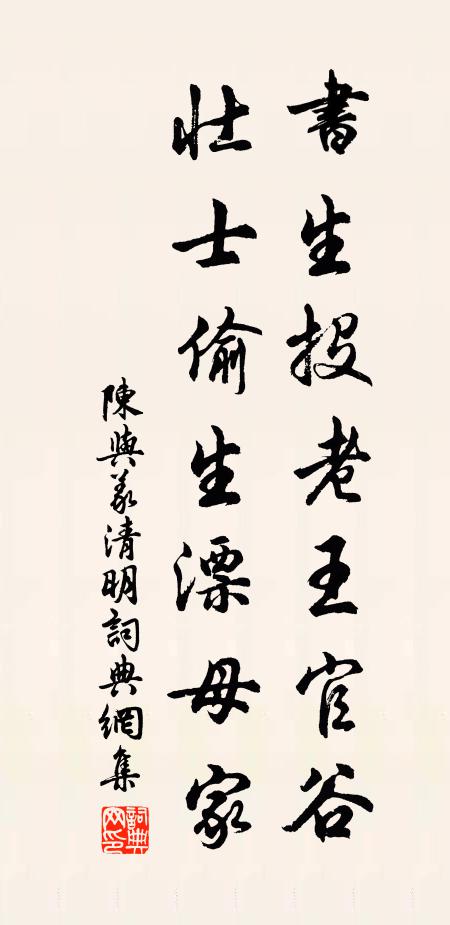 書生投老王官谷
壯士偷生漂母家
陳與義清明詞典網集
詞典網印